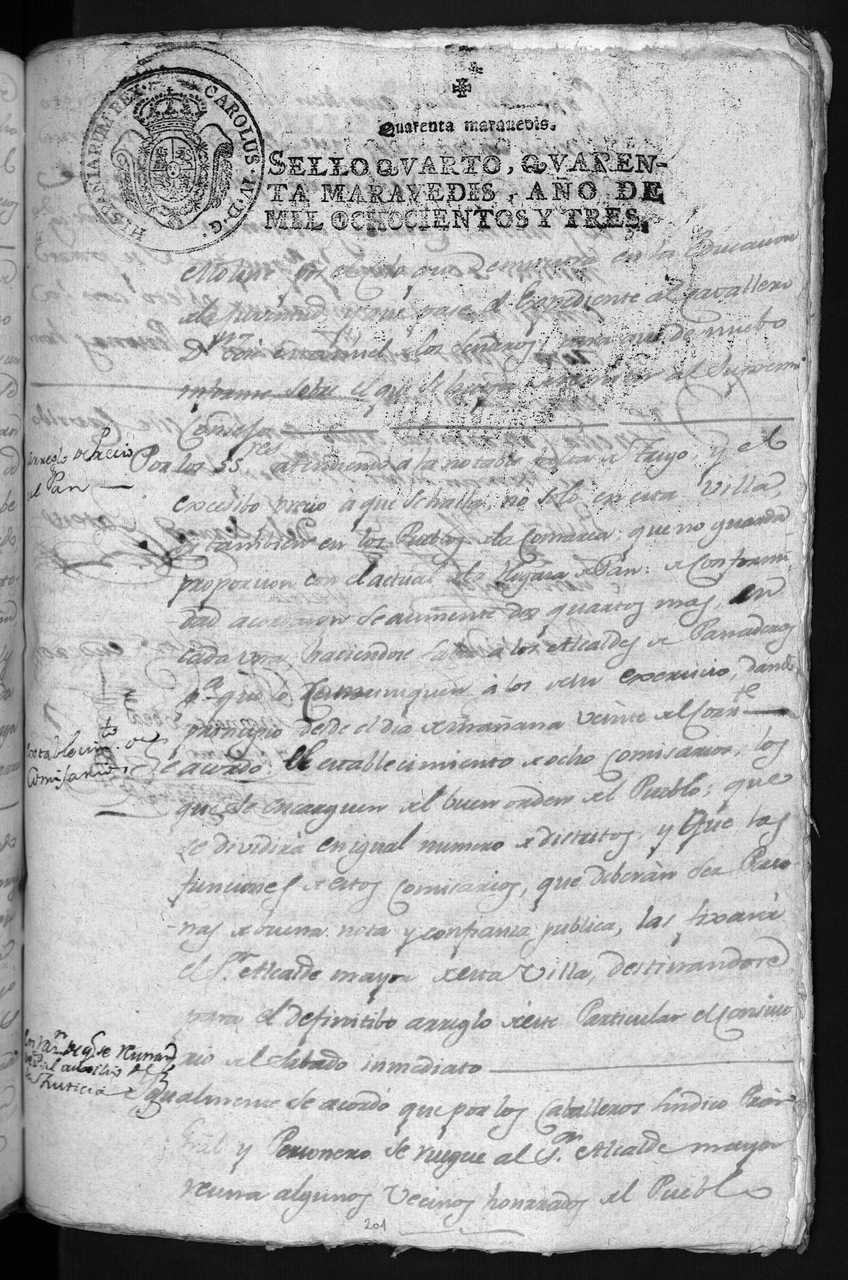 HISPANIARUM REX. CAROLUS. IV. D. G.
Quarenta maravedis.
SELLO QVARTO, QVAREN-
TA MARAVEDIS, AÑO DE
MIL OCHOCIENTOS Y TRES.
en la Educacion
y que pase el Expediente al Cavallero
Dn para que de nuebo
informe sobre el que se al Supremo
Consejo
arreglo de Precio
del Pan
Por los SSres. atendiendo á la notable de Trigo, y el
excesibo precio á que se halla, no solo en esta Villa,
y tambien en los Pueblos de la Comarca; que no guarda
proporcion con el actual de la Pan: de Conformi-
dad acordaron se aumente dos quartos mas, en
cada una, haciendose saber á los Alcaldes de Panaderos
pa. que lo Comuniquen á los de su exercicio, dando
principio desde el dia de mañana veinte del Corrte.
Establecimto. de
Comisarios
Se acordó: el establecimiento de ocho Comisarios, los
que se encarguen del buen orden del Pueblo; que
se dividirá en igual numero de distritos, y que las
funciones de estos Comisarios, que deberán ser Perso-
nas de buena nota y confianza publica, las fixará
el Sr. Alcalde mayor de esta Villa, destinandose
para el definitibo arreglo de este Particular el Consisto
rio del Sabado inmediato
de qe. se reunan
al auxilio de la
Justicia
Igualmente se acordó que por los Caballeros Sindico Prór.
Gral y Personero se ruegue al Sor. Alcalde mayor
reuna algunos Vecinos honrrados del Pueblo
201